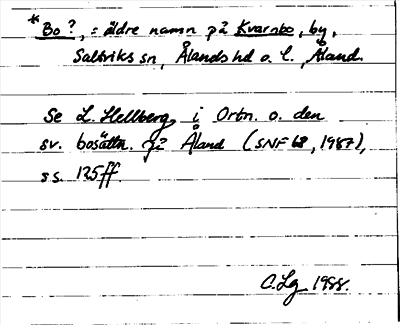 *Bo?, = äldre namn på Kvarnbo, by,
Saltviks sn, Ålands hd o. l., Åland.
Se L. Hellberg i Ortn. o. den
sv. bosättn. på Åland (SNF 68, 1987),
ss. 125ff.
C.Lg 1988.